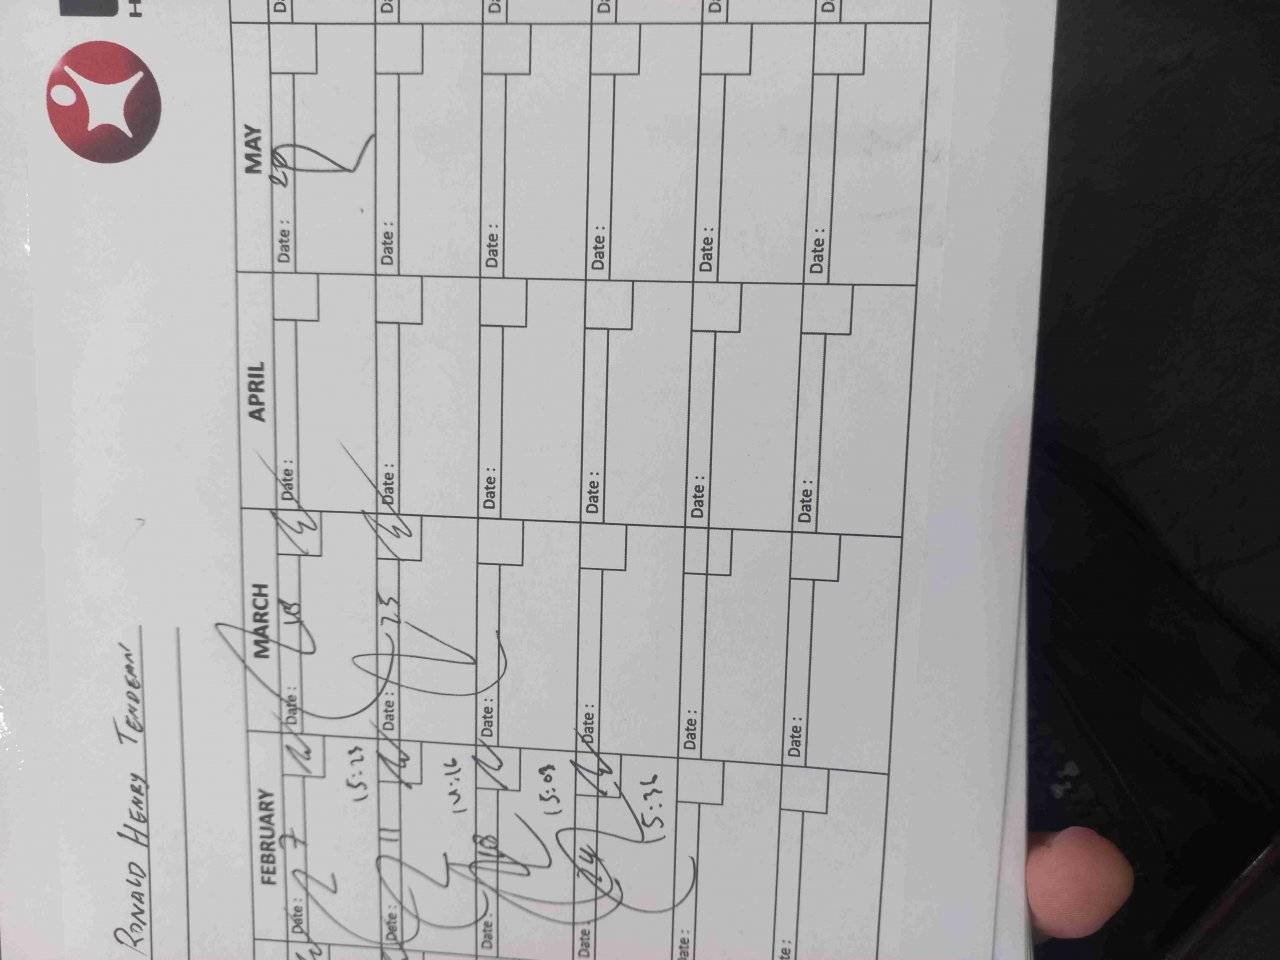 RONALD HENRY TENDEAN
FEBRUARY MARCH APRIL MAY
Date : 7 Date : 18 Date : Date :
15:23
Date : 11 Date : 25 Date : Date :
14:16
Date : 18 Date : Date : Date :
15:03
Date : Date : Date : Date :
15:36
Date : Date : Date : Date :
Date : Date : Date : Date :